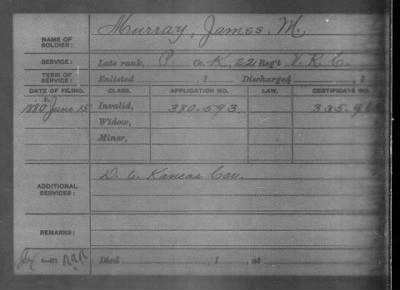 NAME OF SOLDIER: Murray, James, M.
SERVICE: Late rank, P Co. K, 22 Reg't V. R. C.
TERM OF SERVICE: Enlisted , 1 Discharged , 1
DATE OF FILING. CLASS. APPLICATION NO. LAW. CERTIFICATE NO.
1880 June 15 Invalid, 380.593
Widow,
Minor,
ADDITIONAL SERVICES: Kansas Cav.
REMARKS:
Died , 1 , at